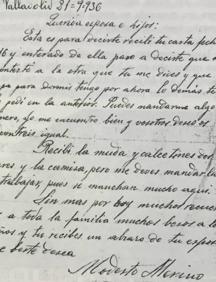 Valladolid 31-9-936
Querida esposa e hijos:
Esta es para decirte recibí tu carta fech
16 y enterado de ella paso a decirte que a
contesté a la otra que tu me dices y que
pa para dormir tengo por ahora lo demás te
pedí en la anterior. Puedes mandarme algo
nero, yo me encuentro bien y vosotros deseo es
contreis igual.
Recibí la muda y calcetines dos
res y la camisa, pero me deves mandar la
trabajar, pues se manchan mucho aquí.
Sin mas por hoy muchos recuer
a toda la familia muchos besos a lo
ños y tu recibes un abrazo de tu espos
e verte desea
Modesto Merino